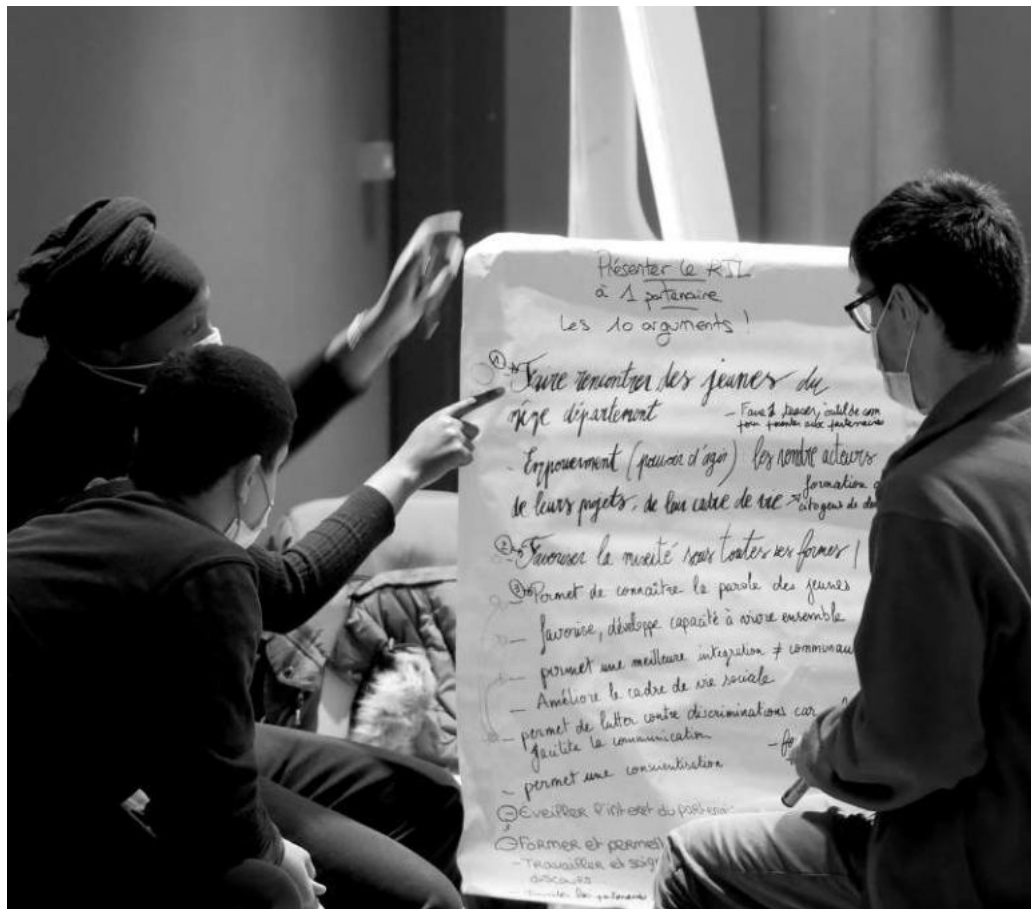 Présenter le RJL
à 1 partenaire
Les 10 arguments !
① Faire rencontrer des jeunes du
même département
- Faire 1 teaser, outil de com
pour monter aux partenaires
- Empowerment (pouvoir d'agir) : les rendre acteurs
de leurs projets, de leur cadre de vie → formation
citoyens de
② Favoriser la mixité sous toutes ses formes !
③ Permet de connaître la parole des jeunes
- favorise, développe capacité à vivre ensemble
- permet une meilleure intégration ≠ communau
- Améliore le cadre de vie sociale
- permet de lutter contre discriminations car
facilite la communication
- permet une conscientisation
- Eveiller l'interet du parten
- Former et permett
- Travailler et soig
discours
partenaires